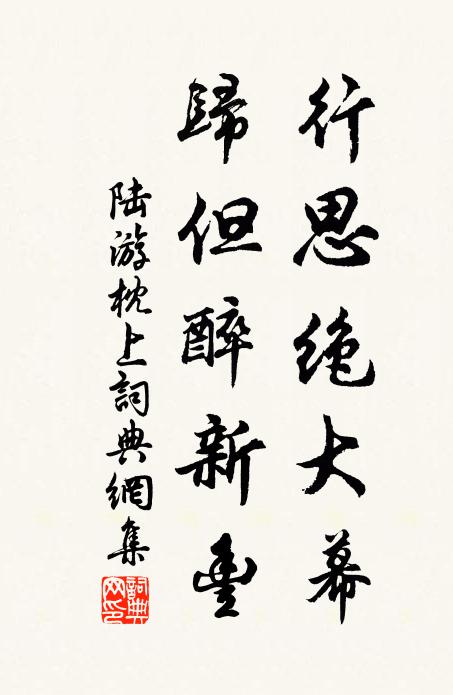 行思絶大幕
歸但醉新豊
陆游枕上詞典網集
詞典網印